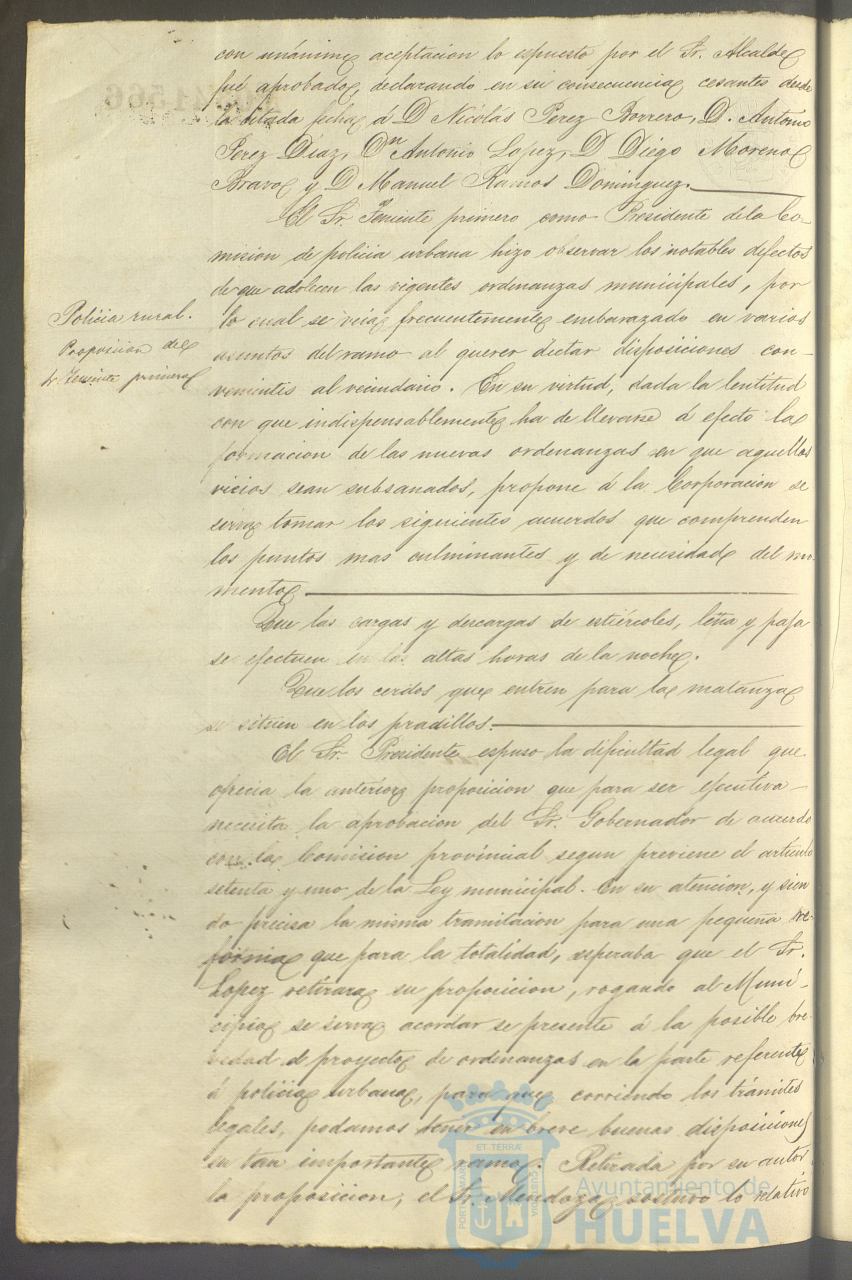 con unánime aceptacion lo espuesto por el Sr. Alcalde
fué aprobado, declarando en su consecuencia cesantes desde
la citada fecha á D Nicolás Perez Borrero, D. Antonio
Perez Diaz, Dn Antonio Lopez, D Diego Moreno
Bravo y D Manuel Ramos Dominguez.
El Sr. Teniente primero como Presidente de la Co-
mision de policia urbana hizo observar los notables defectos
de que adolecen las vigentes ordenanzas municipales, por
lo cual se veia frecuentemente embarazado en varios
asuntos del ramo al querer dictar disposiciones con-
venientes al vecindario. En su virtud, dada la lentitud
con que indispensablemente ha de llevarse á efecto la
formacion de las nuevas ordenanzas en que aquellos
vicios sean subsanados, propone á la Corporacion se
sirva tomar los siguientes acuerdos que comprenden
los puntos mas culminantes y de necesidad del mo-
mento
Policia rural.
Proposicion del
Sr. Teniente primero
Que las cargas y descargas de estiércoles, leña y paja
se efectuen en las altas horas de la noche.
Que los cerdos que entren para la matanza
se situen en los pradillos.
El Sr. Presidente espuso la dificultad legal que
ofrecia la anterior proposicion que para ser ejecutiva
necesita la aprobacion del Sr. Gobernador de acuerdo
con la Comision provincial segun previene el artículo
setenta y uno de la Ley municipal. En su atencion, y sien
do precisa la misma tramitacion para una pequeña re-
forma que para la totalidad, esperaba que el Sr.
Lopez retirara su proposicion, rogando al Muni-
cipio se sirva acordar se presente á la posible bre-
vedad el proyecto de ordenanzas en la parte referente
á policia urbana, para que corriendo los trámites
legales, podamos tener en breve buenas disposiciones
en tan importante ramo. Retirada por su autor
la proposicion, el Sr. Mendoza sostuvo lo relativo
PORTUS MARIS
ET TERRÆ
CUSTODIA
Ayuntamiento de
HUELVA